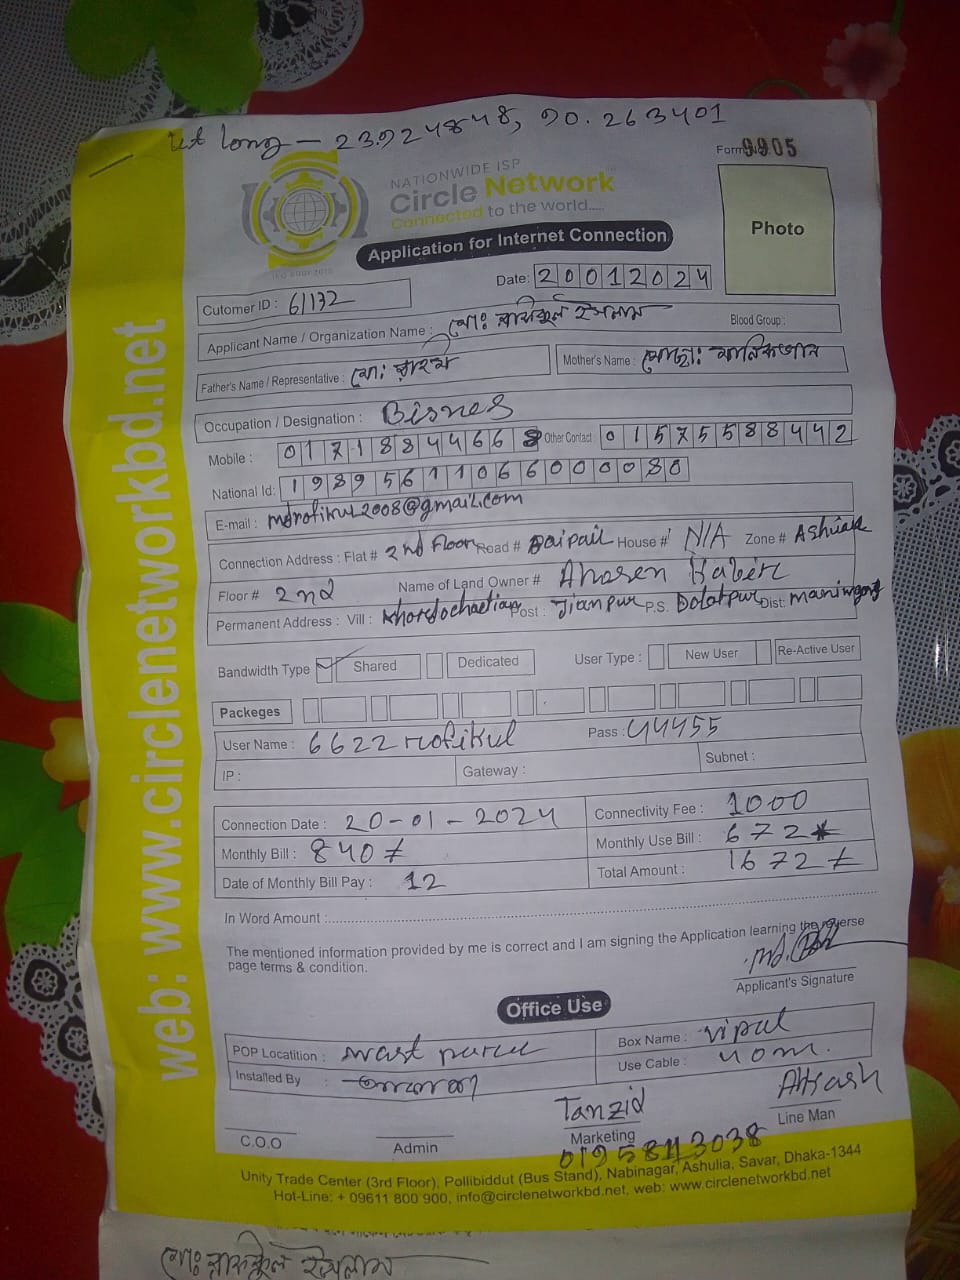 Lat long – 23.924848, 90.263401
Form No 9905
NATIONWIDE ISP
Circle Network
Connected to the world.....
ISO 9001:2015
Application for Internet Connection
Photo
Date: 20012024
Cutomer ID : 61172
Applicant Name / Organization Name : মোঃ রফিকুল ইসলাম Blood Group :
Father's Name / Representative : মোঃ Mother's Name : মোছাঃ
Occupation / Designation : Bisnes
Mobile : 01718844668 Other Contact 01575588442
National Id: 19895611066000080
E-mail : mdrofikul2008@gmail.com
Connection Address : Flat # 2nd Floor Road # Baipail House # N/A Zone # Ashulia
Floor # 2nd Name of Land Owner # Ahasen Kabir
Permanent Address : Vill : Post : Jianpur P.S. Dolatpur Dist: Manikgong
Bandwidth Type Shared Dedicated User Type : New User Re-Active User
Packeges
User Name : 6622rofikul Pass : 44455
IP : Gateway : Subnet :
Connection Date : 20-01-2024 Connectivity Fee : 1000
Monthly Bill : 840/- Monthly Use Bill : 672
Date of Monthly Bill Pay : 12 Total Amount : 1672/-
In Word Amount :
The mentioned information provided by me is correct and I am signing the Application learning the reverse
page terms & condition.
Applicant's Signature
Office Use
POP Locatition : Box Name : Vipul
Installed By : Use Cable : 40m.
Tanzid
C.O.O Admin Marketing Line Man
01958113038
Unity Trade Center (3rd Floor), Pollibiddut (Bus Stand), Nabinagar, Ashulia, Savar, Dhaka-1344
Hot-Line: + 09611 800 900, info@circlenetworkbd.net, web: www.circlenetworkbd.net
web: www.circlenetworkbd.net
মোঃ রফিকুল ইসলাম